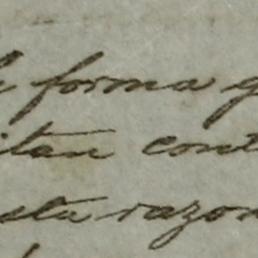 forma
itan cont
sta razon